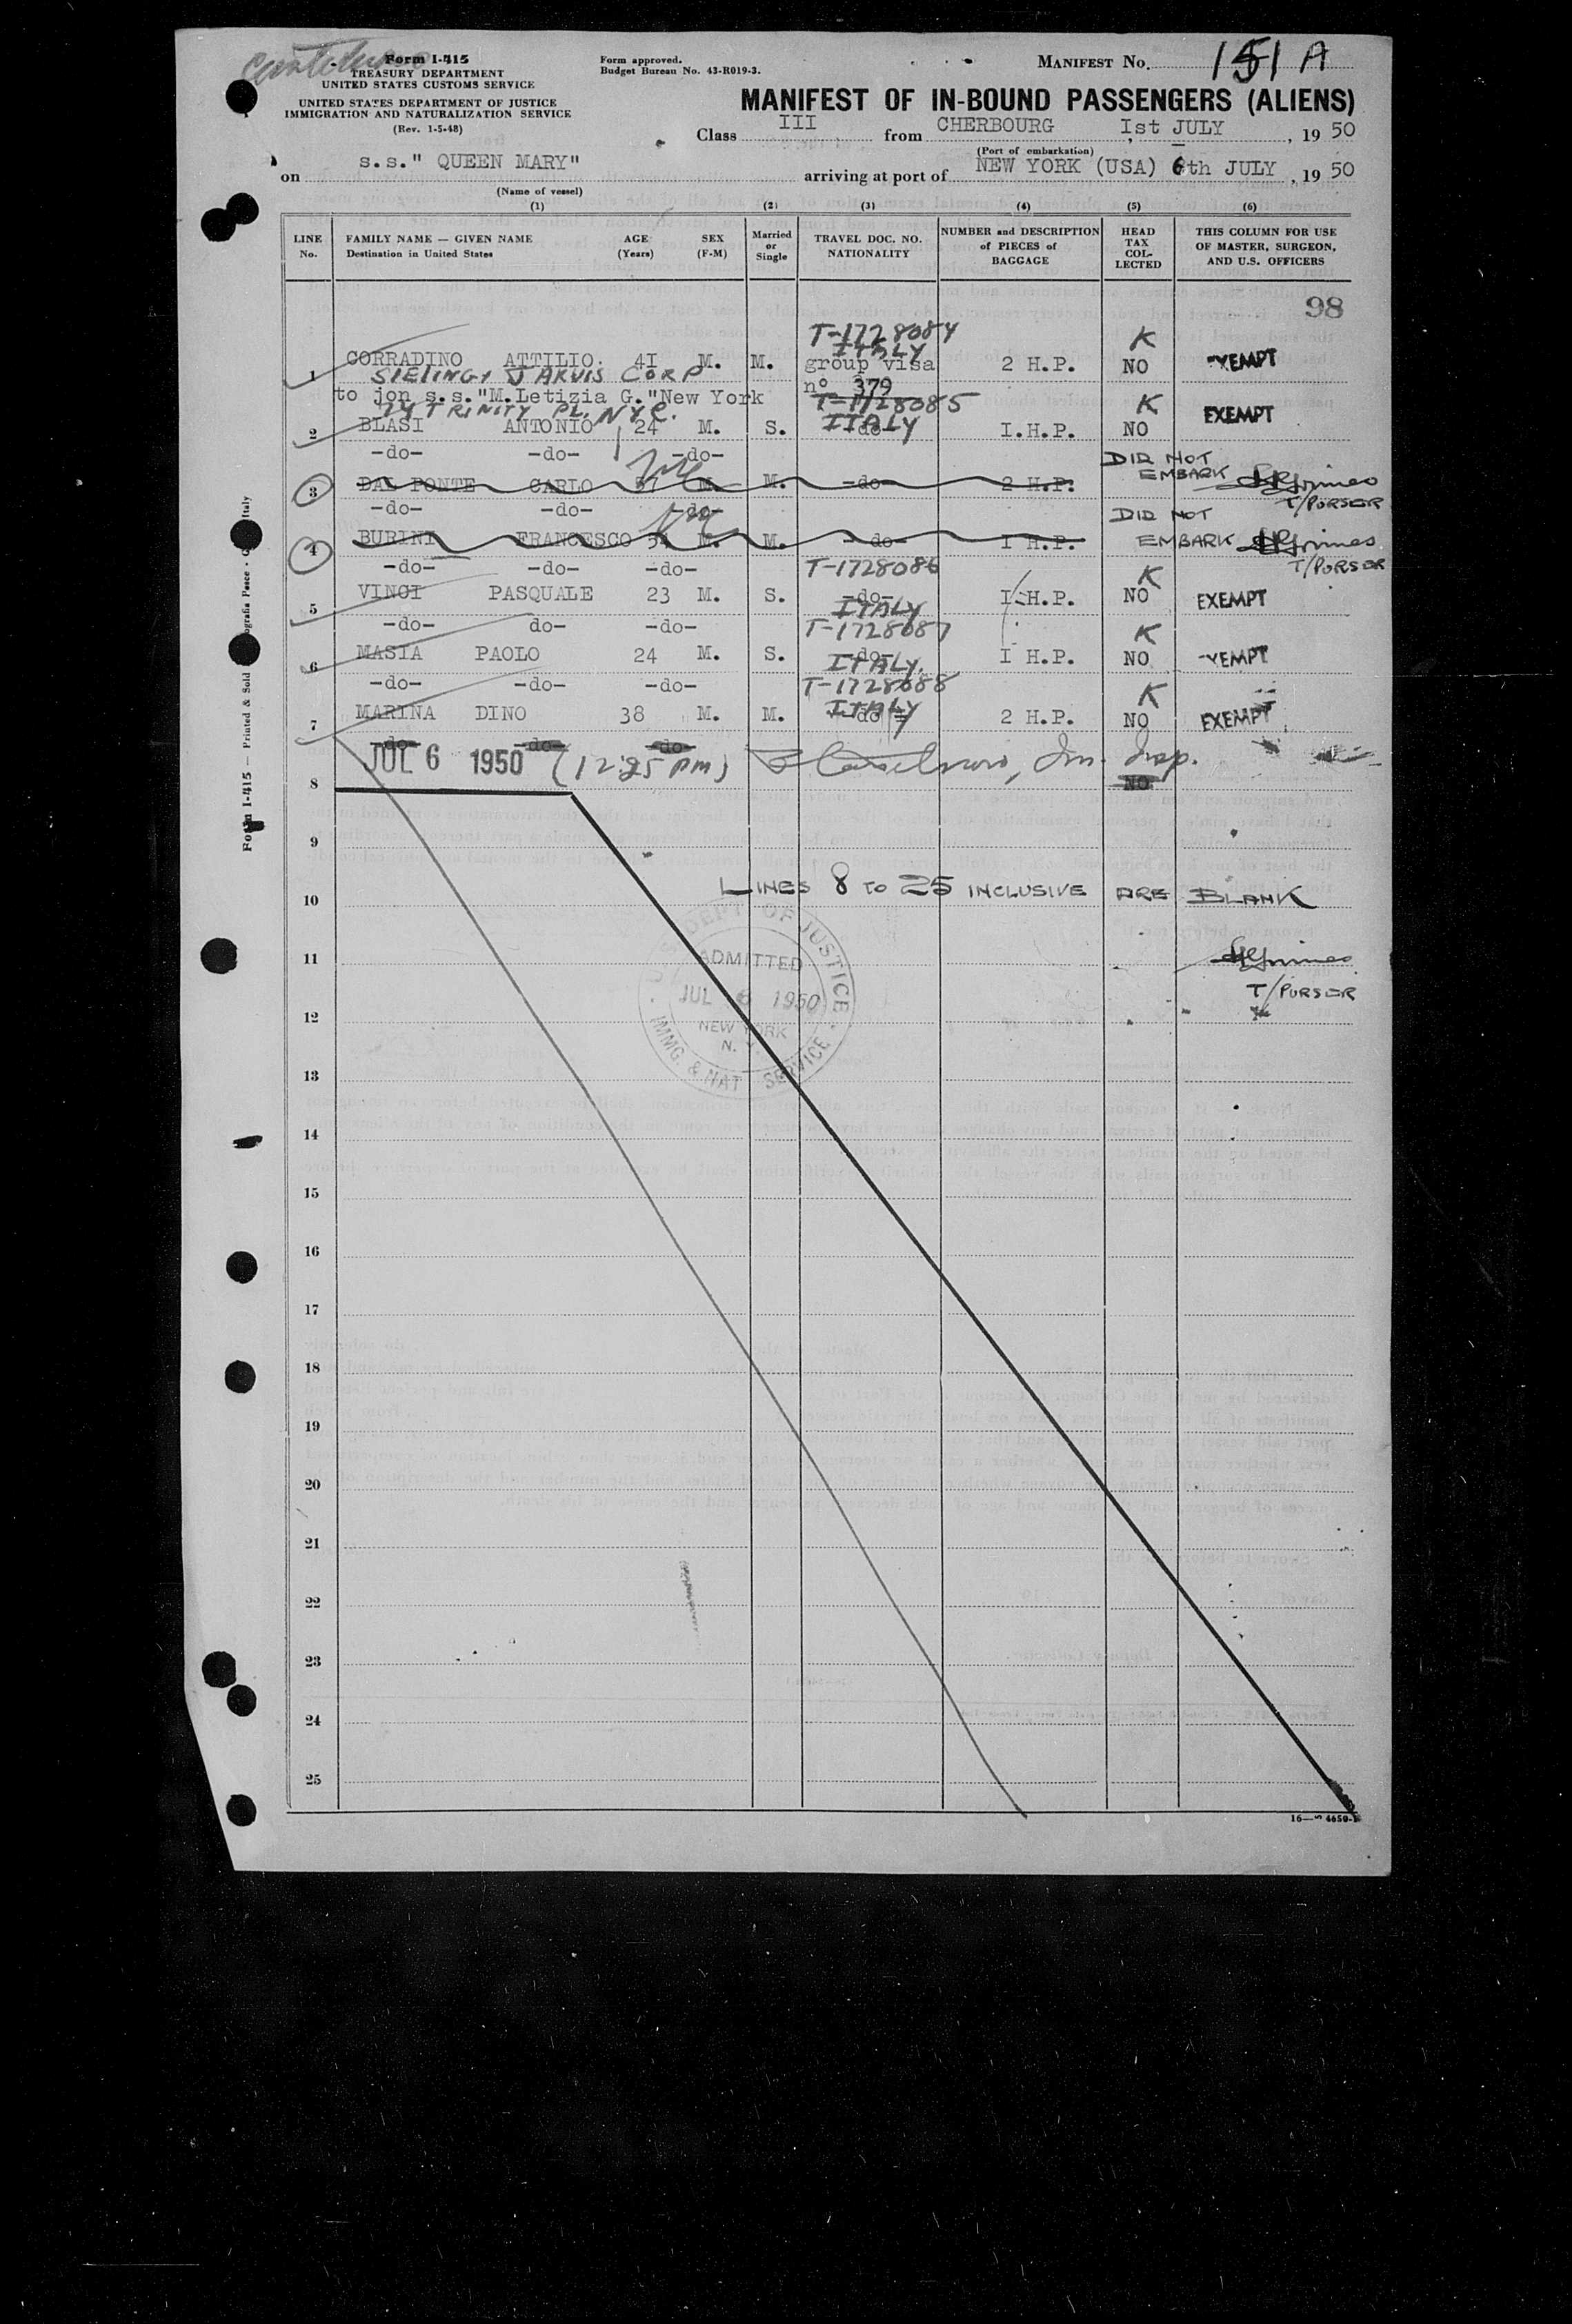 Form I-415
TREASURY DEPARTMENT
UNITED STATES CUSTOMS SERVICE
UNITED STATES DEPARTMENT OF JUSTICE
IMMIGRATION AND NATURALIZATION SERVICE
(Rev. 1-5-48)
Form approved.
Budget Bureau No. 43-R019-3.
MANIFEST No. 151 A
MANIFEST OF IN-BOUND PASSENGERS (ALIENS)
Class III from CHERBOURG , Ist JULY , 19 50
(Port of embarkation)
on s.s." QUEEN MARY" arriving at port of NEW YORK (USA) 6th JULY , 19 50
(Name of vessel)
(1) (2) (3) (4) (5) (6)
LINE No.
FAMILY NAME — GIVEN NAME
Destination in United States
AGE (Years)
SEX (F-M)
Married or Single
TRAVEL DOC. NO. NATIONALITY
NUMBER and DESCRIPTION of PIECES of BAGGAGE
HEAD TAX COL- LECTED
THIS COLUMN FOR USE OF MASTER, SURGEON, AND U.S. OFFICERS
98
T-1728084 K
ITALY
1 CORRADINO ATTILIO. 4I M. M. group visa 2 H.P. NO EXEMPT
SIELING & JARVIS CORP
nº 379
to jon s.s."M.Letizia G."New York
T-1728085 K
24 TRINITY PL. NYC.
2 BLASI ANTONIO 24 M. S. -do- ITALY I.H.P. NO EXEMPT
-do- -do- -do-
DID NOT EMBARK
3 DAL PONTE CARLO 37 M. M. -do- 2 H.P.
T/PURSER
-do- -do- -do-
DID NOT
4 BURINI FRANCESCO 54 M. M. -do- I H.P. EMBARK
T/PURSER
-do- -do- -do-
T-1728086 K
5 VINCI PASQUALE 23 M. S. -do- I H.P. NO EXEMPT
ITALY
-do- do- -do-
T-1728087 K
6 MASIA PAOLO 24 M. S. -do- I H.P. NO EXEMPT
ITALY.
-do- -do- -do-
T-1728088 K
ITALY
7 MARINA DINO 38 M. M. -do- 2 H.P. NO EXEMPT
do -do- -do-
JUL 6 1950 (12:25 PM) Im. Insp.
NO
8
9
LINES 8 TO 25 INCLUSIVE ARE BLANK
10
11
T/PURSER
U.S. DEPT OF JUSTICE
ADMITTED
JUL 6 1950
NEW YORK
N. Y.
IMMG. & NAT SERVICE
12
13
14
15
16
17
18
19
20
21
22
23
24
25
Form I-415 — Printed & Sold